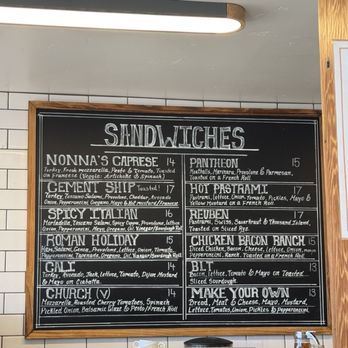 SANDWICHES
NONNA'S CAPRESE 14
Turkey, Fresh mozzarella, Pesto & Tomato, Toasted
on Francese (Veggie: Artichoke & Spinach)
CEMENT SHIP Toasted! 17
Turkey, Toscano Salame, Provolone, Cheddar, Avocado
Onion, Pepperoncini, Mayo
SPICY ITALIAN 16
Mortadella, Toscano Salame, Spicy Coppa, Provolone, Lettuce
Onion, Pepperoncini, Mayo, Oregano, Oil Vinegar/Hoagie Roll
ROMAN HOLIDAY 15
Ham, Salame, Genoa, Provolone, Lettuce, Onion, Tomato,
Pepperoncini, Oregano, Oil Vinegar/Roll
CALI 14
Turkey, Avocado, Jack, Lettuce, Tomato, Dijon Mustard
& Mayo on Ciabatta.
CHURCH (V) 14
Mozzarella, Roasted Cherry Tomatoes, Spinach
Pickled Onion, Balsamic Glaze & Pesto/French Roll
PANTHEON 15
Meatballs, Marinara, Provolone & Parmesan,
Toasted on a French Roll
HOT PASTRAMI 17
Pastrami, Swiss, Onion, Pickles, Mayo &
Yellow Mustard on a French Roll
REUBEN 17
Pastrami, Swiss, Sauerkraut & Thousand Island,
Toasted on Sliced Rye.
CHICKEN BACON RANCH 15
Sliced Chicken, Bacon, Cheese, Lettuce, Onion,
Pepperoncini, Ranch, Toasted on a French Roll
BLT 13
Bacon, Lettuce, Tomato & Mayo on Toasted
Sliced Sourdough
MAKE YOUR OWN 13
Bread, Meat & Cheese, Mayo, Mustard,
Lettuce, Tomatoes, Onion, Pickles & Pepperoncini